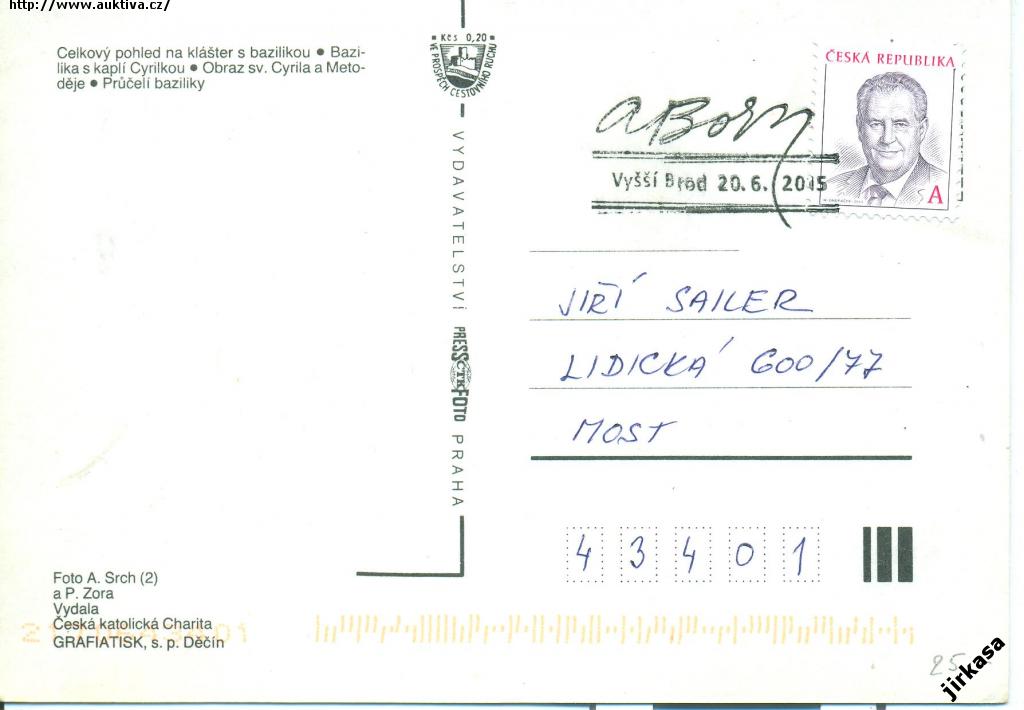 http://www.auktiva.cz/
Celkový pohled na klášter s bazilikou • Bazi-
lika s kaplí Cyrilkou • Obraz sv. Cyrila a Meto-
děje • Průčelí baziliky
Kčs 0,20
VE PROSPĚCH CESTOVNÍHO RUCHU
VYDAVATELSTVÍ PRESSFOTO PRAHA
ČTK
ABorn
Vyšší Brod 20.6. 2015
ČESKÁ REPUBLIKA
A
JIŘÍ SAILER
LIDICKÁ 600/77
MOST
43401
Foto A. Srch (2)
a P. Zora
Vydala
Česká katolická Charita
GRAFIATISK, s. p. Děčín
25
jirkasa